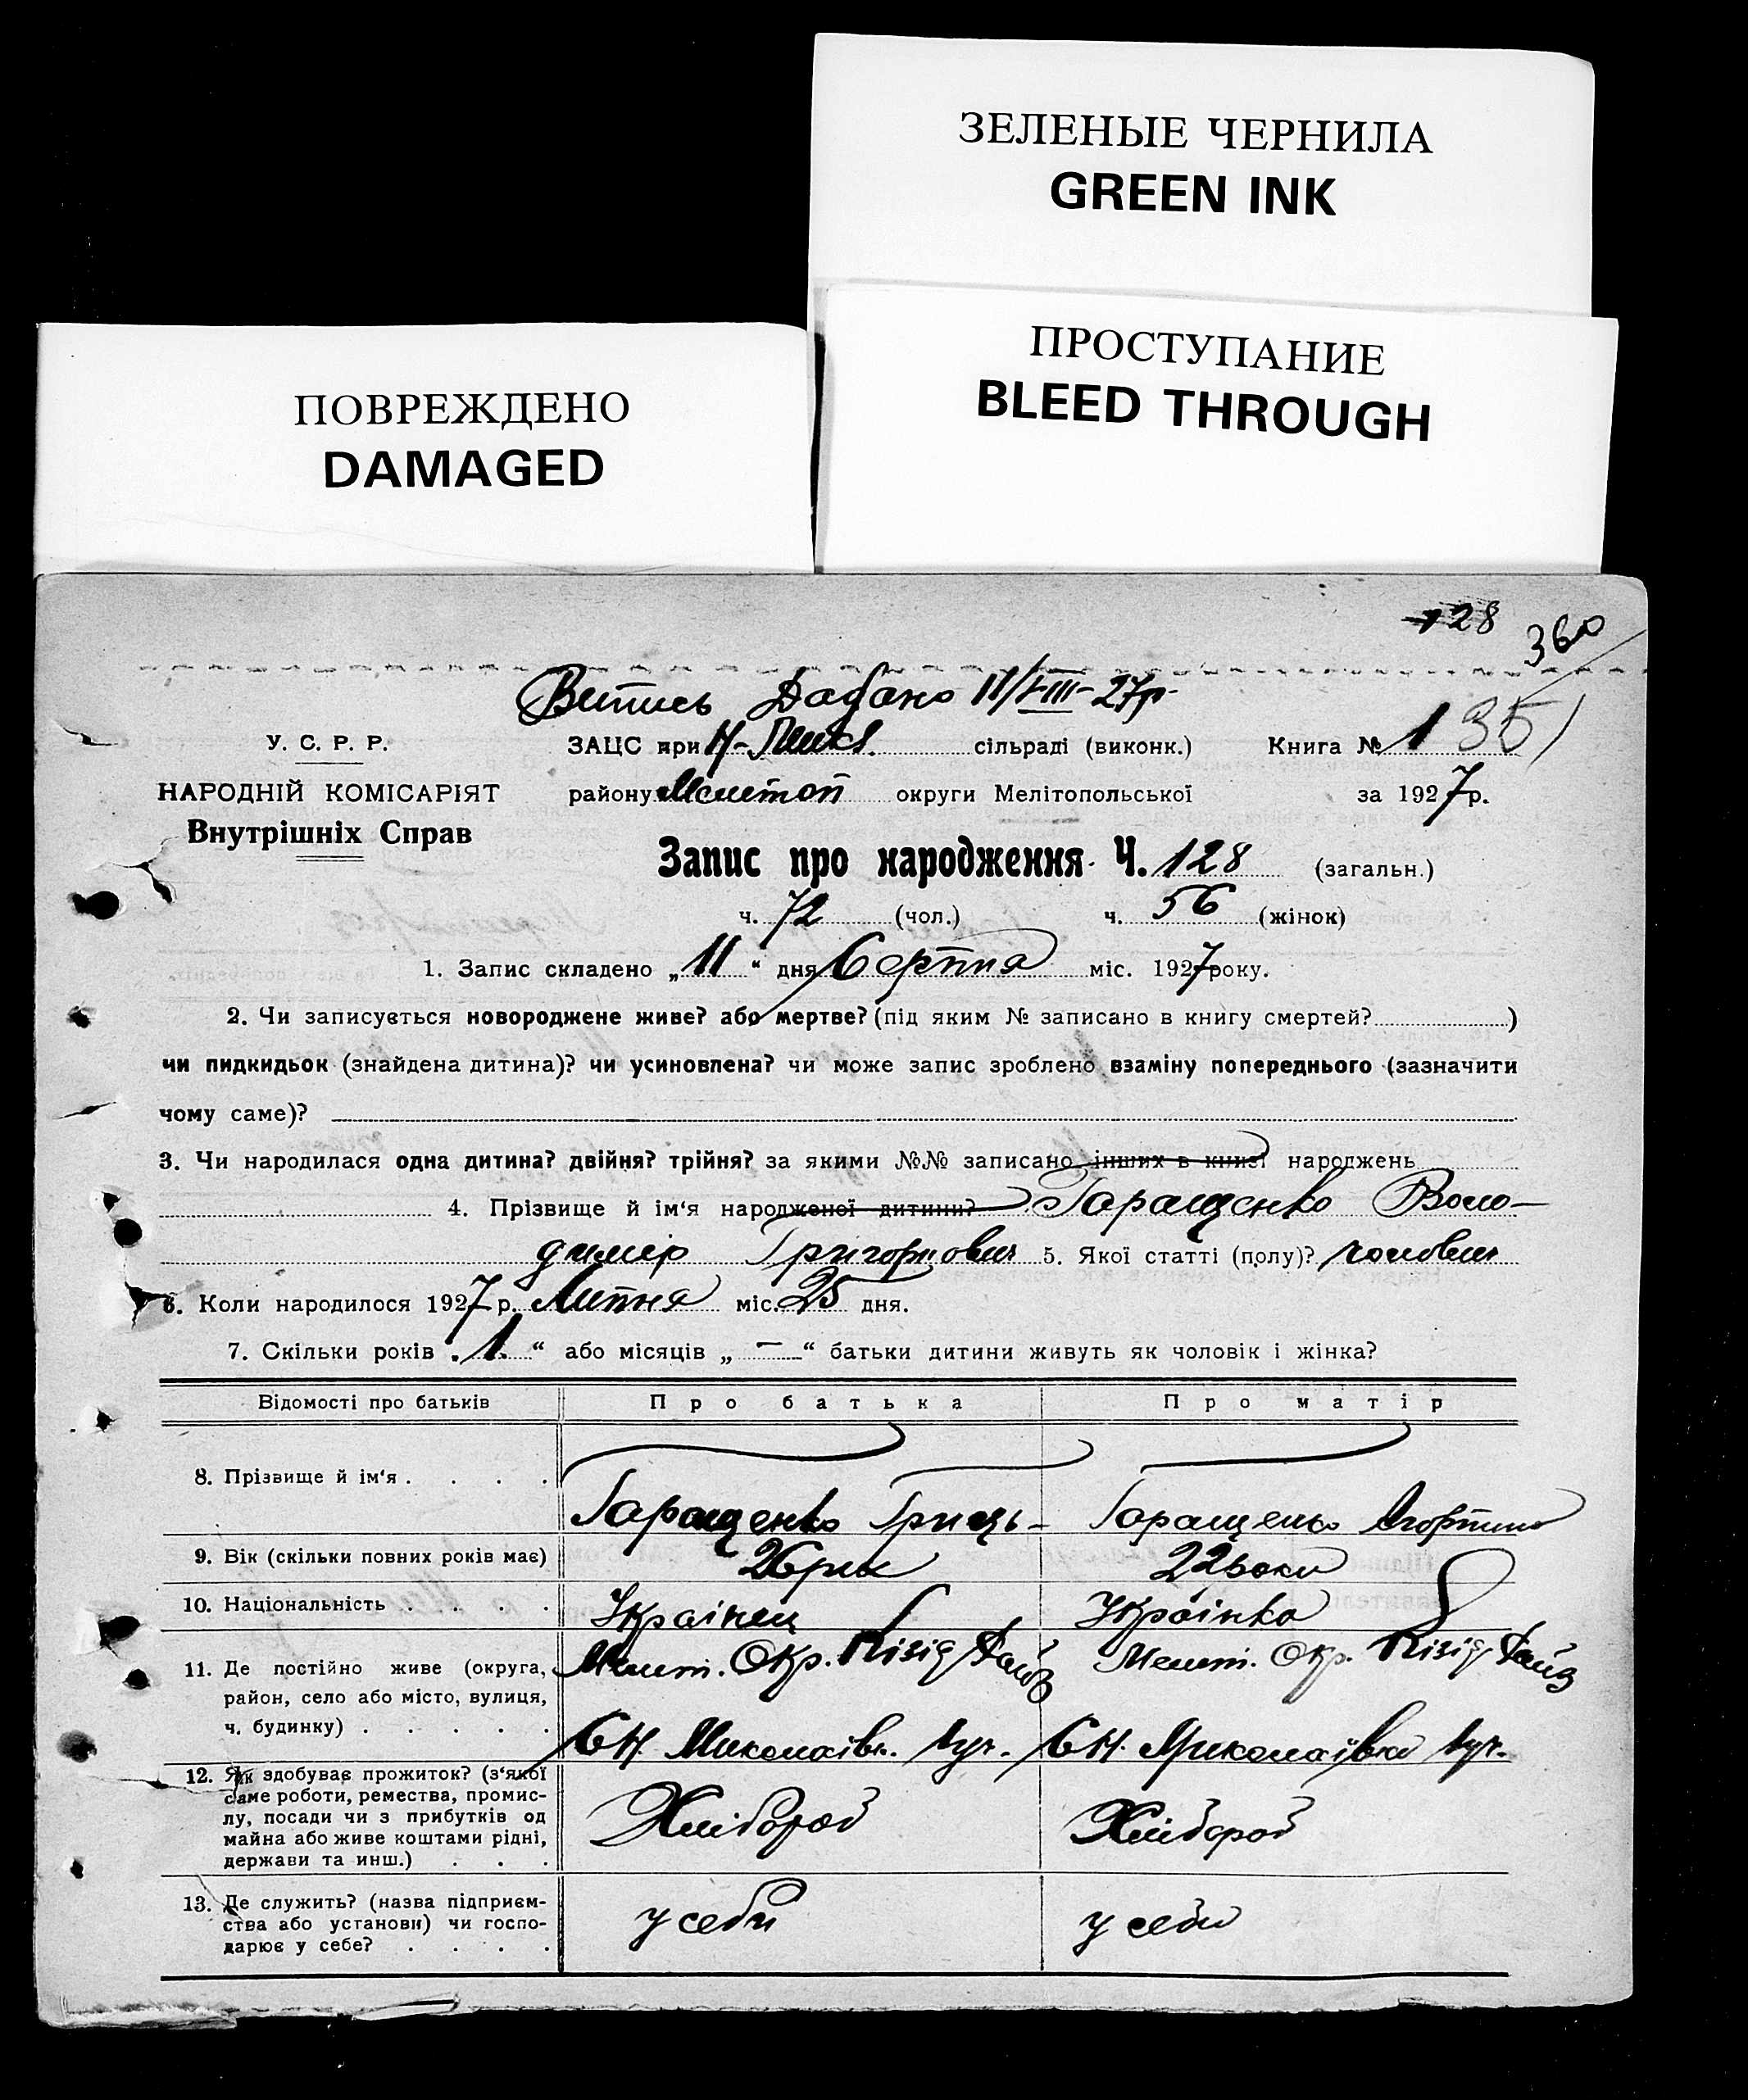 ЗЕЛЕНЫЕ ЧЕРНИЛА
GREEN INK
ПРОСТУПАНИЕ
BLEED THROUGH
ПОВРЕЖДЕНО
DAMAGED
128
360
Витись Дадано 11/VIII-27р.
У. С. Р. Р.
ЗАЦС при сільраді (виконк.) Книга № 1 351
НАРОДНІЙ КОМІСАРІЯТ
району Мелітоп округи Мелітопольської за 1927 р.
Внутрішніх Справ
Запис про народження Ч. 128 (загальн.)
ч. 72 (чол.) ч. 56 (жінок)
1. Запис складено „11“ дня Серпня міс. 1927 року.
2. Чи записується новороджене живе? або мертве? (під яким № записано в книгу смертей? )
чи пидкидьок (знайдена дитина)? чи усиновлена? чи може запис зроблено взаміну попереднього (зазначити
чому саме)?
3. Чи народилася одна дитина? двійня? трійня? за якими №№ записано інших в книзі народжень
4. Прізвище й ім‘я народженої дитини? Гаращенко Воло-
димір Григорнович 5. Якої статті (полу)? чолович
6. Коли народилося 1927 р. Липня міс. 25 дня.
7. Скільки років „1.“ або місяців „—“ батьки дитини живуть як чоловік і жінка?
Відомості про батьків Про батька Про матір
8. Прізвище й ім‘я . . . .
Гаращенко Грицъ- Гаращенко
9. Вік (скільки повних років має) 26 рік 22 роки
10. Національність . . . . Українец Українка
11. Де постійно живе (округа, Меліт. Окр. Меліт. Окр.
район, село або місто, вулиця,
ч. будинку) . . . . . С Н. Миколаівк. вул. С Н. Миколаївка вул.
12. Як здобуває прожиток? (з‘якої
саме роботи, ремества, промис-
лу, посади чи з прибутків од Хлібороб Хлібороб
майна або живе коштами рідні,
держави та инш.) . . .
13. Де служить? (назва підприєм-
ства або установи) чи госпо- у себи у себи
дарює у себе? . . . .